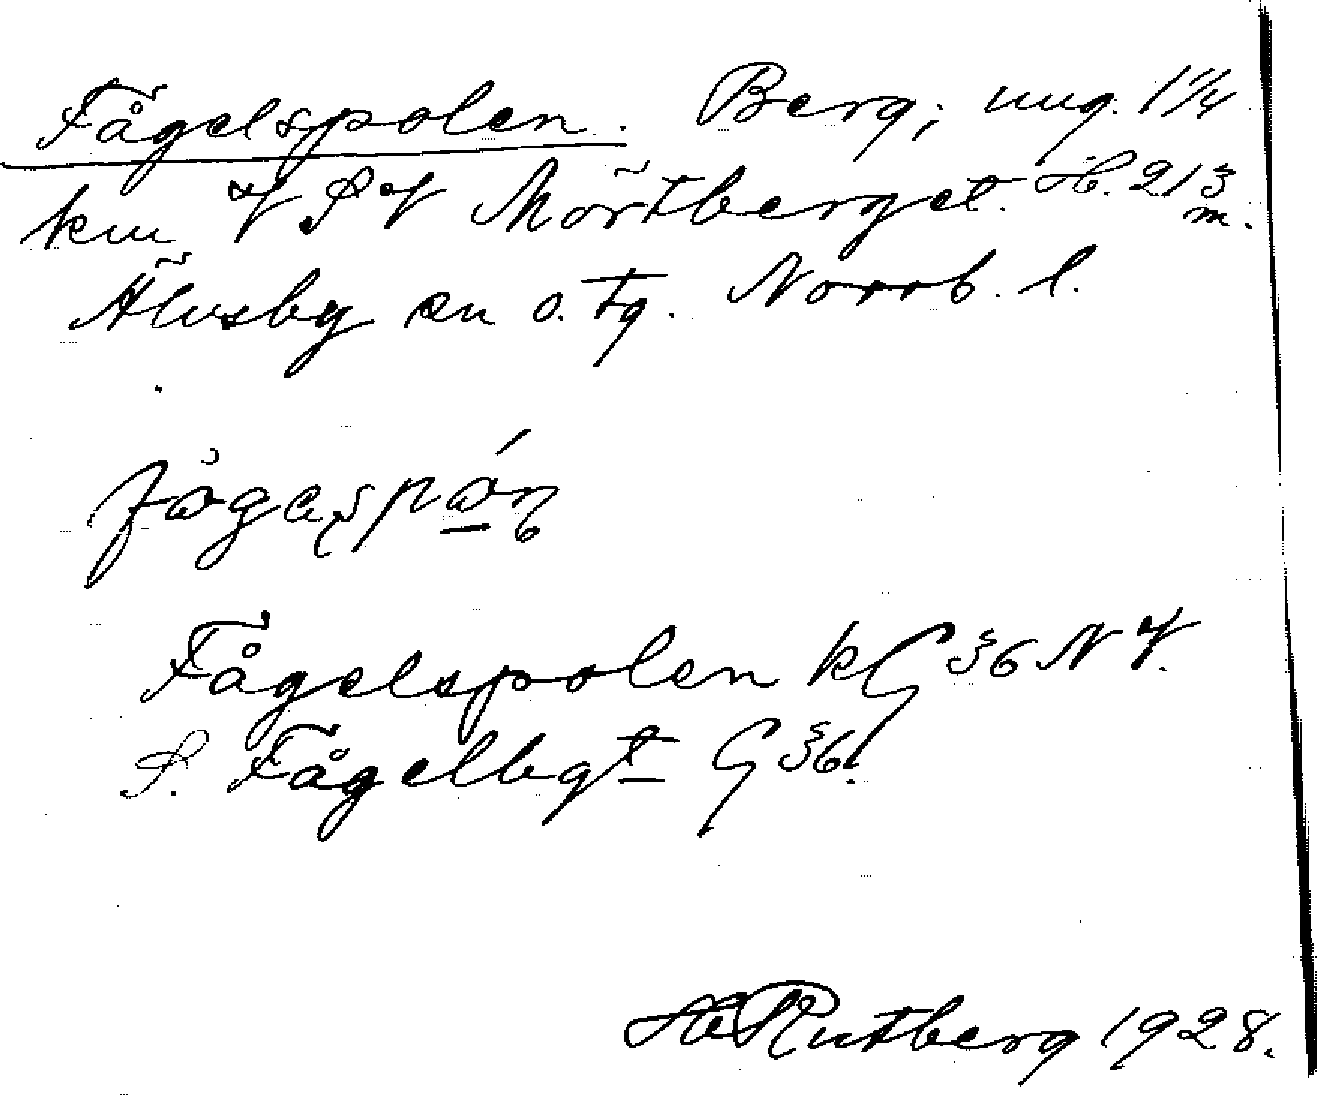 Fågelspolen. Berg; ung. 1 1/4
km VSV Mörtberget. H. 213 m.
Älvsby sn o. tg. Norrb. l.
Fågelspolen kG 36 NV.
S. Fågelbgt G 36.
H Rutberg 1928.